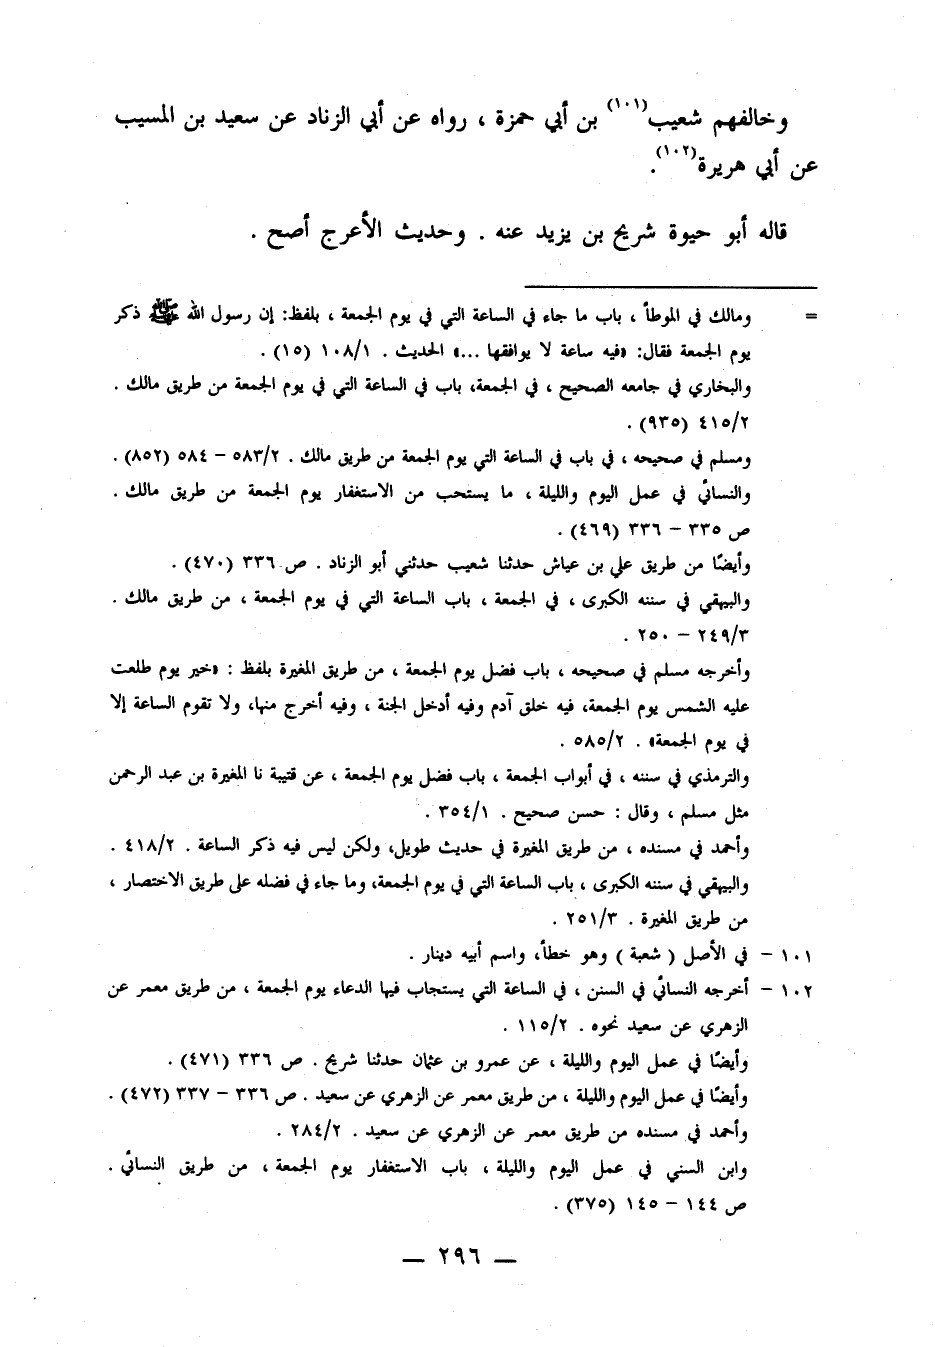 وخالفهم شعيب(١٠١) بن أبي حمزة ، رواه عن أبي الزناد عن سعيد بن المسيب
عن أبي هريرة(١٠٢).
قاله أبو حيوة شريح بن يزيد عنه . وحديث الأعرج أصح .
= ومالك في الموطأ ، باب ما جاء في الساعة التي في يوم الجمعة ، بلفظ: إن رسول الله ﷺ ذكر
يوم الجمعة فقال: «فيه ساعة لا يوافقها ...» الحديث . ١٠٨/١ (١٥) .
والبخاري في جامعه الصحيح ، في الجمعة، باب في الساعة التي في يوم الجمعة من طريق مالك .
٤١٥/٢ (٩٣٥) .
ومسلم في صحيحه ، في باب في الساعة التي يوم الجمعة من طريق مالك . ٥٨٣/٢ – ٥٨٤ (٨٥٢) .
والنسائي في عمل اليوم والليلة ، ما يستحب من الاستغفار يوم الجمعة من طريق مالك .
ص ٣٣٥ – ٣٣٦ (٤٦٩) .
وأيضًا من طريق علي بن عياش حدثنا شعيب حدثني أبو الزناد . ص ٣٣٦ (٤٧٠) .
والبيهقي في سننه الكبرى ، في الجمعة ، باب الساعة التي في يوم الجمعة ، من طريق مالك .
٢٤٩/٣ – ٢٥٠ .
وأخرجه مسلم في صحيحه ، باب فضل يوم الجمعة ، من طريق المغيرة بلفظ : «خير يوم طلعت
عليه الشمس يوم الجمعة، فيه خلق آدم وفيه أدخل الجنة ، وفيه أخرج منها، ولا تقوم الساعة إلا
في يوم الجمعة» . ٥٨٥/٢ .
والترمذي في سننه ، في أبواب الجمعة ، باب فضل يوم الجمعة ، عن قتيبة نا المغيرة بن عبد الرحمن
مثل مسلم ، وقال : حسن صحيح . ٣٥٤/١ .
وأحمد في مسنده ، من طريق المغيرة في حديث طويل، ولكن ليس فيه ذكر الساعة . ٤١٨/٢ .
والبيهقي في سننه الكبرى ، باب الساعة التي في يوم الجمعة، وما جاء في فضله على طريق الاختصار ،
من طريق المغيرة . ٢٥١/٣ .
١٠١ – في الأصل ( شعبة ) وهو خطأ، واسم أبيه دينار .
١٠٢ – أخرجه النسائي في السنن ، في الساعة التي يستجاب فيها الدعاء يوم الجمعة ، من طريق معمر عن
الزهري عن سعيد نحوه . ١١٥/٢ .
وأيضًا في عمل اليوم والليلة ، عن عمرو بن عثمان حدثنا شريح . ص ٣٣٦ (٤٧١) .
وأيضًا في عمل اليوم والليلة ، من طريق معمر عن الزهري عن سعيد . ص ٣٣٦ – ٣٣٧ (٤٧٢) .
وأحمد في مسنده من طريق معمر عن الزهري عن سعيد . ٢٨٤/٢ .
وابن السني في عمل اليوم والليلة ، باب الاستغفار يوم الجمعة ، من طريق النسائي .
ص ١٤٤ – ١٤٥ (٣٧٥) .
— ٢٩٦ —